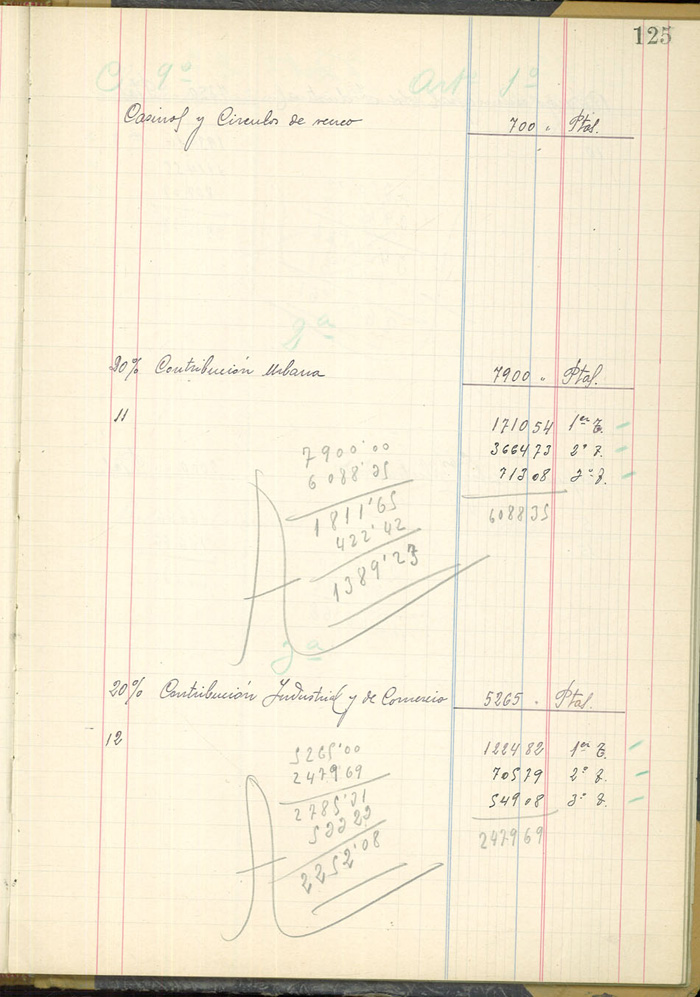 125
Cap. 9º Artº 1º
Casinos y Circulos de recreo 700 " Ptas.
2ª
20% Contribución Urbana 7900 " Ptas.
11 1710 54 1er T.
3664 73 2º T.
713 08 3er T.
6088 35
7900'00
6088'35
1811'65
422'42
1389'23
3ª
20% Contribución Industrial y de Comercio 5265 " Ptas.
12 1224 82 1er T.
705 79 2º T.
549 08 3er T.
2479 69
5265'00
2479'69
2785'31
533 23
2252'08